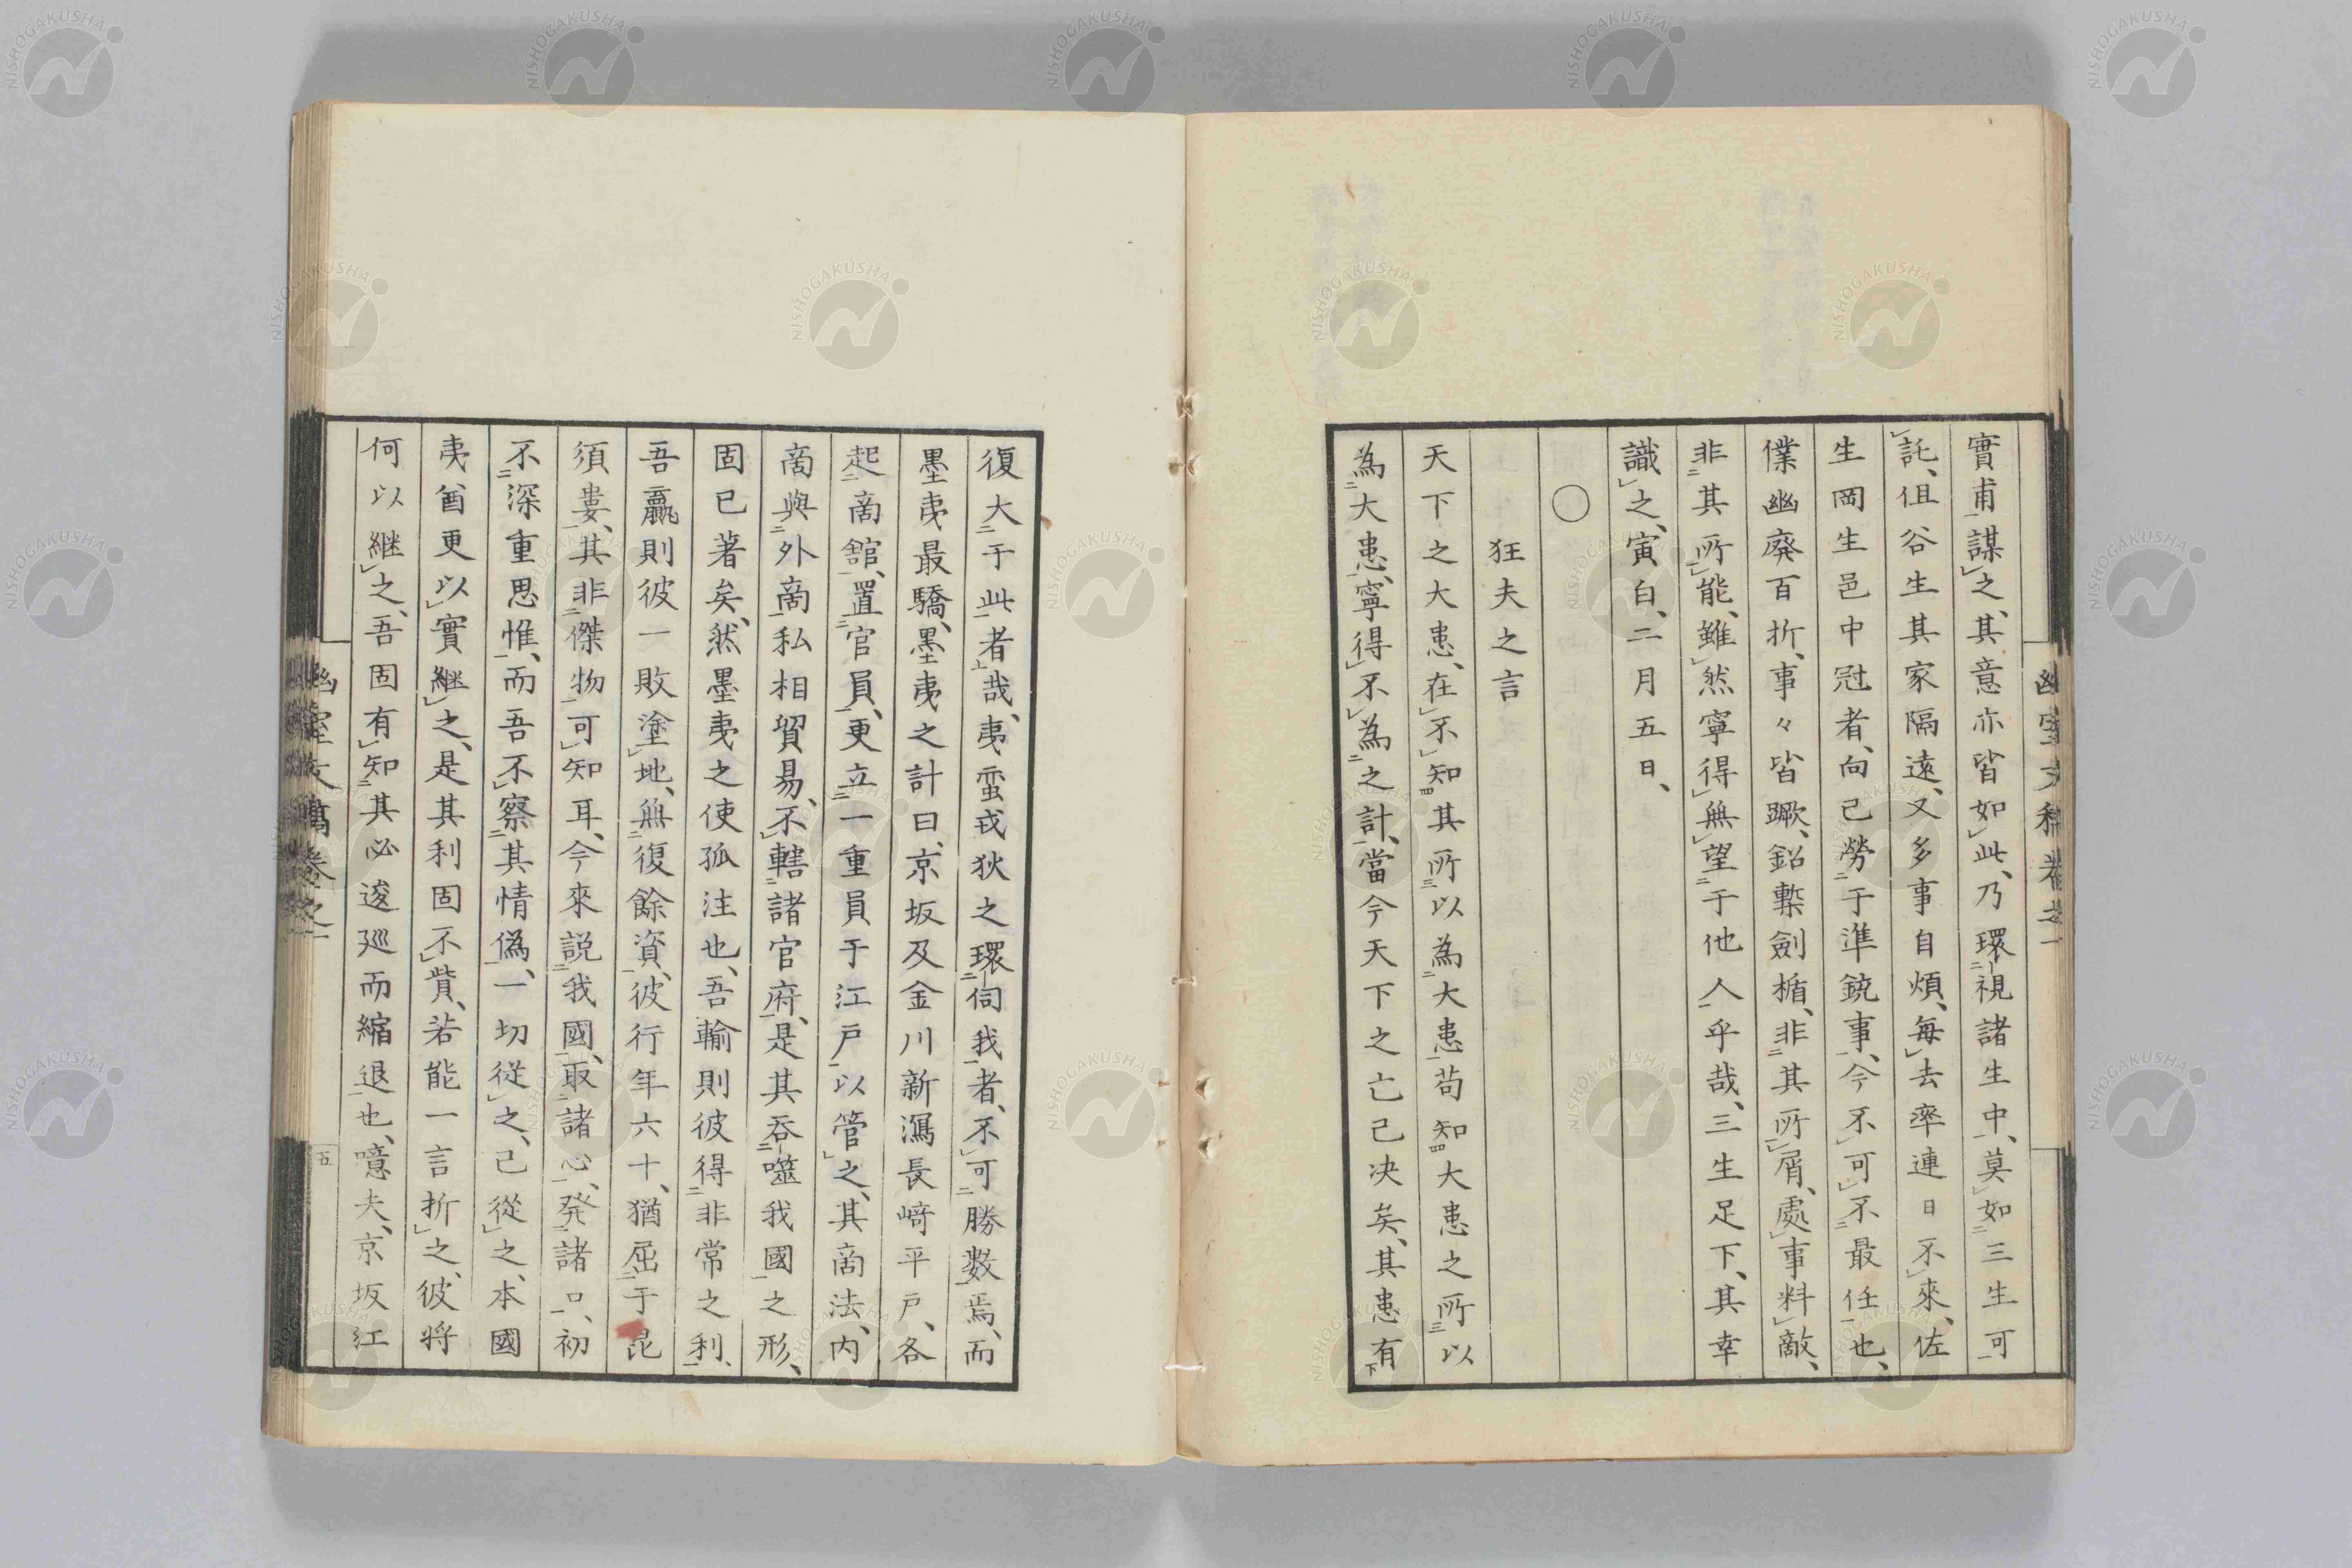 實甫謀之、其意亦皆如此、乃環視諸生中、莫如三生可
託、但谷生其家隔遠、又多事自煩、每去率連日不來、佐
生岡生邑中冠者、向已勞于準銃事、今不可不最任也、
僕幽廢百折、事々皆蹶、鉛槧劍楯、非其所屑、處事料敵、
非其所能、雖然寧得無望于他人乎哉、三生足下、其幸
識之、寅白、二月五日、
○
狂夫之言
天下之大患、在不知其所以為大患、苟知大患之所以
為大患、寧得不為之計、當今天下之亡已决矣、其患有
幽室文稿卷之一
復大于此者哉、夷蛮戎狄之環伺我者、不可勝数焉、而
墨夷最驕、墨夷之計曰、京坂及金川新潟長﨑平戸、各
起商舘、置官員、更立一重員于江戸以管之、其商法、内
商與外商私相貿易、不轄諸官府、是其呑噬我國之形、
固已著矣、然墨夷之使孤注也、吾輸則彼得非常之利、
吾贏則彼一敗塗地、無復餘資、彼行年六十、猶屈于昆
須婁、其非傑物可知耳、今來説我國、取諸心、発諸口、初
不深重思惟、而吾不察其情偽、一切從之、已從之、本國
夷酋更以實継之、是其利固不貲、若能一言折之、彼将
何以継之、吾固有知其必逡巡而縮退也、噫夫、京坂江
幽室文稿卷之一
五
NISHOGAKUSHA